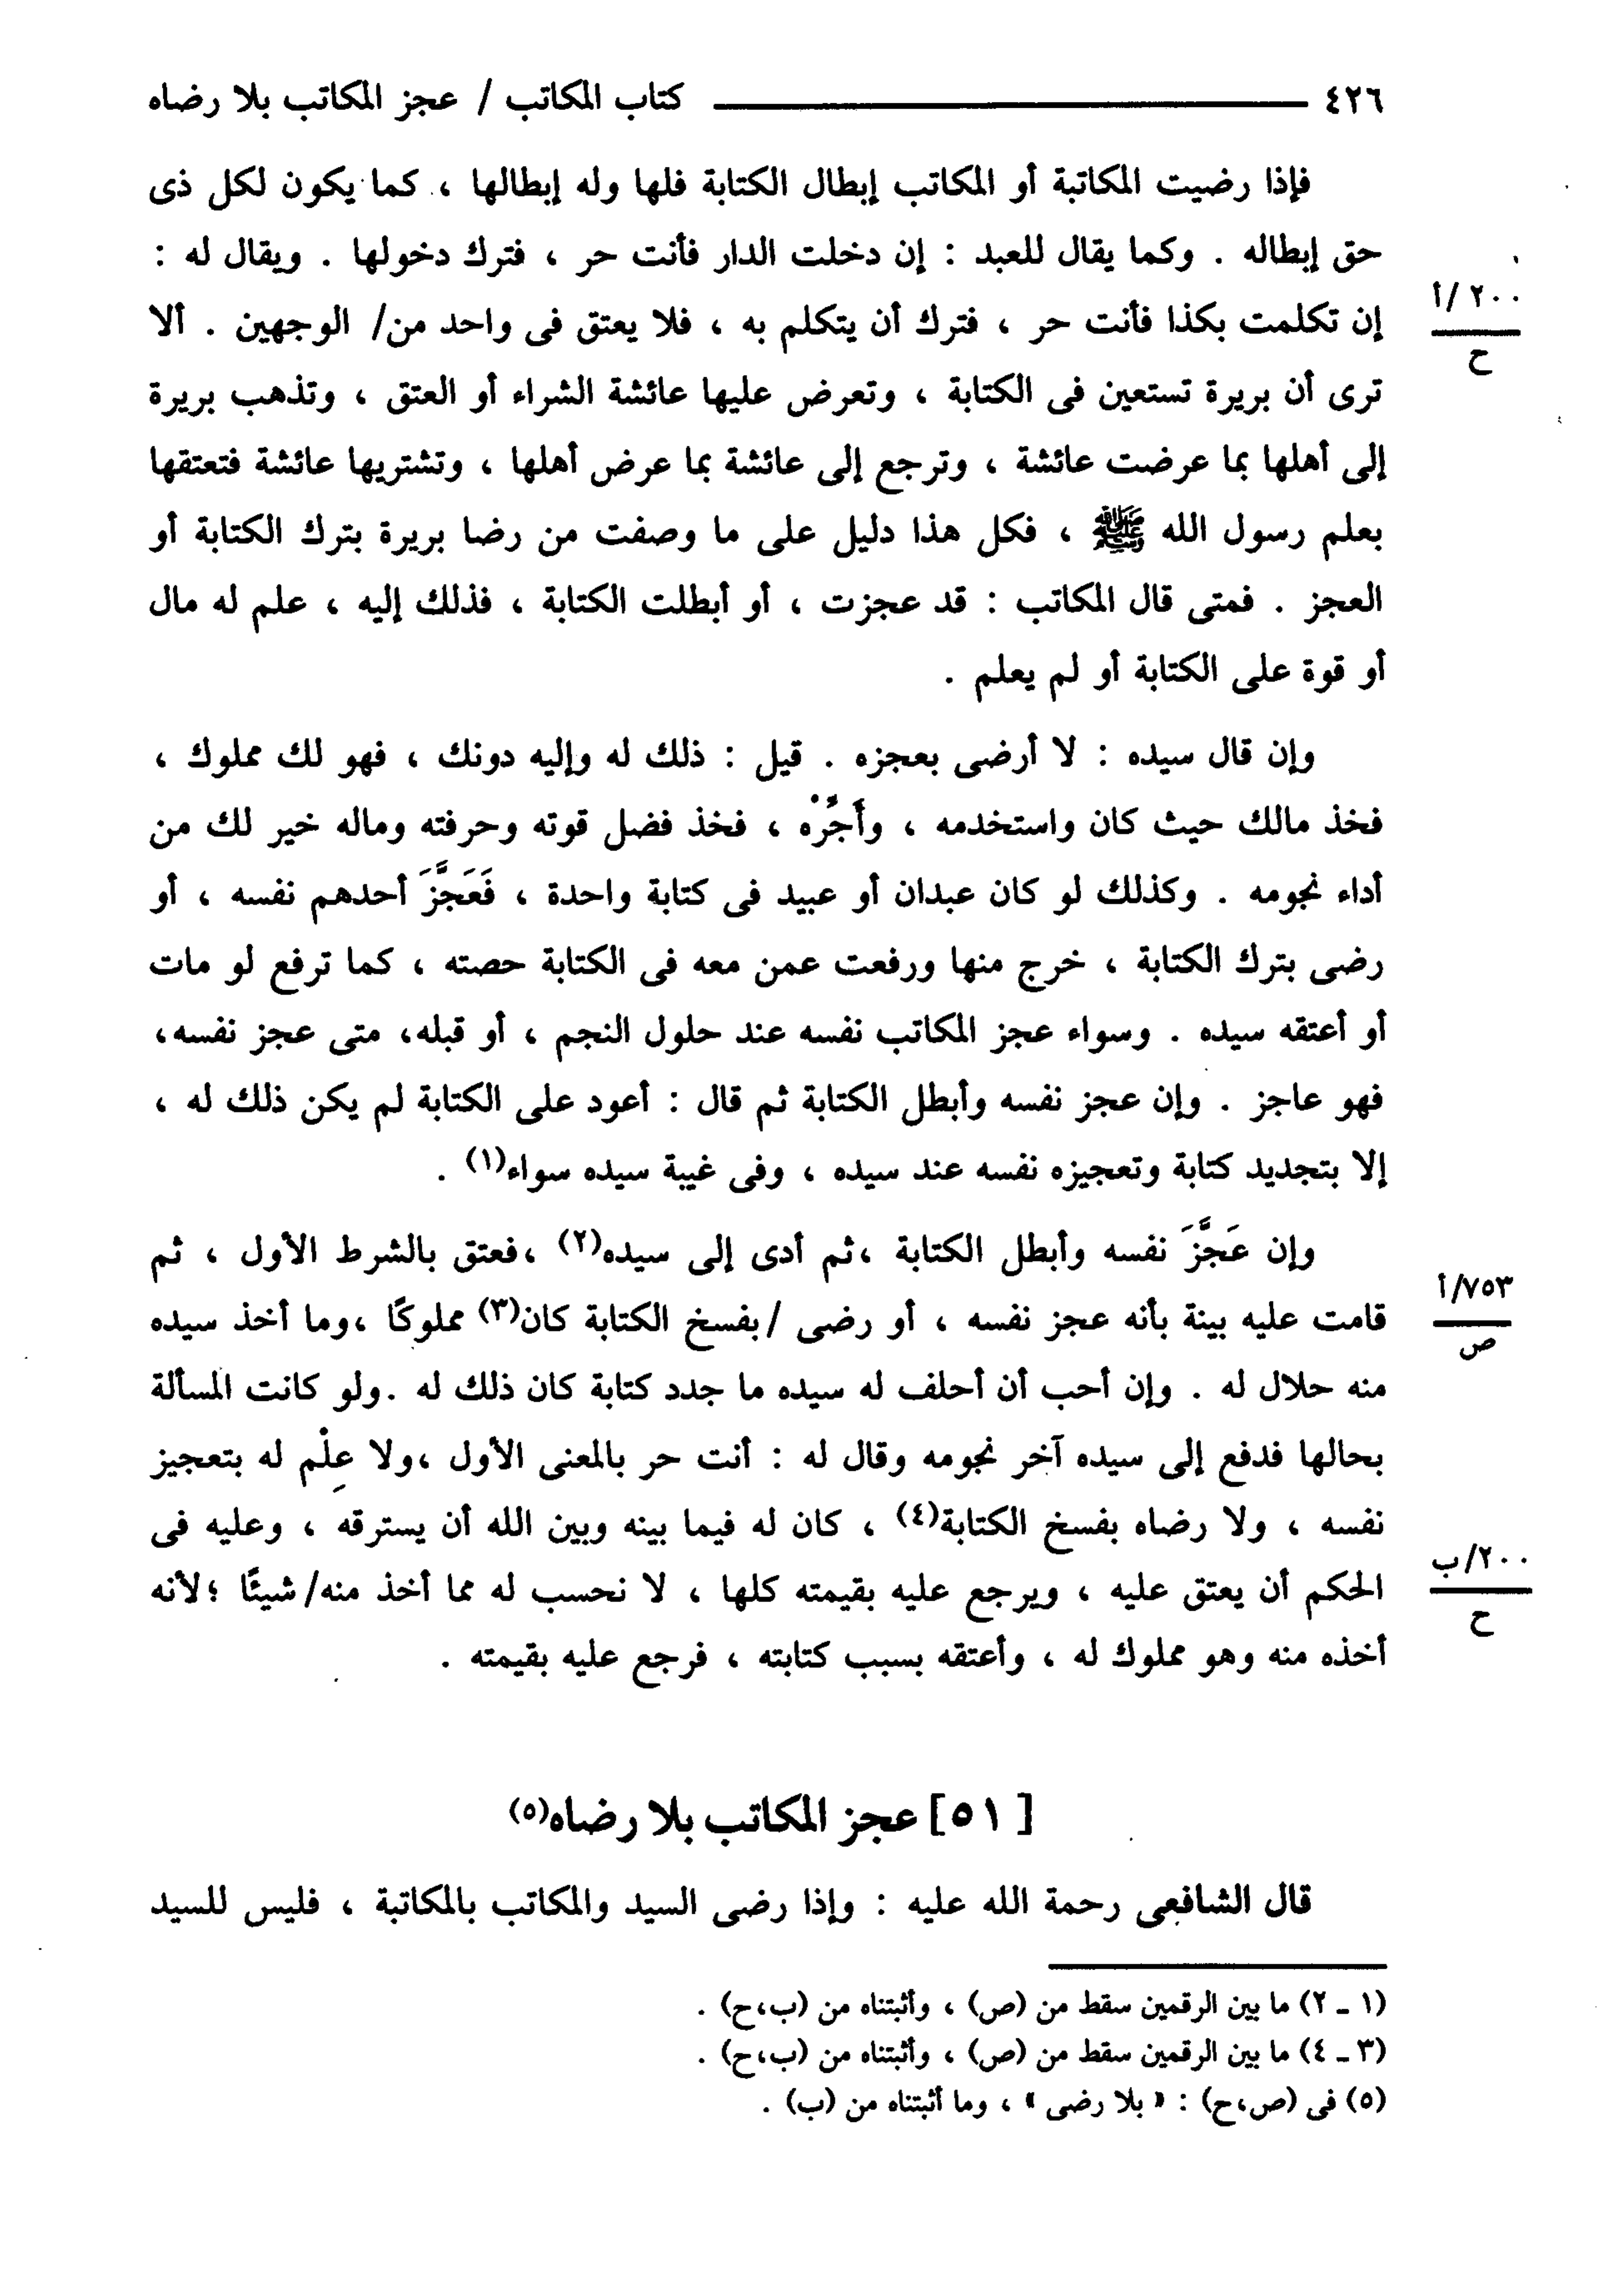 ٤٢٦ ـــــــ كتاب المكاتب / عجز المكاتب بلا رضاه
فإذا رضيت المكاتبة أو المكاتب إبطال الكتابة فلها وله إبطالها ، كما يكون لكل ذى
حق إبطاله . وكما يقال للعبد : إن دخلت الدار فأنت حر ، فترك دخولها . ويقال له :
إن تكلمت بكذا فأنت حر ، فترك أن يتكلم به ، فلا يعتق فى واحد من/ الوجهين . ألا
٢٠٠/أ
ح
ترى أن بريرة تستعين فى الكتابة ، وتعرض عليها عائشة الشراء أو العتق ، وتذهب بريرة
إلى أهلها بما عرضت عائشة ، وترجع إلى عائشة بما عرض أهلها ، وتشتريها عائشة فتعتقها
بعلم رسول الله ﷺ ، فكل هذا دليل على ما وصفت من رضا بريرة بترك الكتابة أو
العجز . فمتى قال المكاتب : قد عجزت ، أو أبطلت الكتابة ، فذلك إليه ، علم له مال
أو قوة على الكتابة أو لم يعلم .
وإن قال سيده : لا أرضى بعجزه . قيل : ذلك له وإليه دونك ، فهو لك مملوك ،
فخذ مالك حيث كان واستخدمه ، وأَجِّرْه ، فخذ فضل قوته وحرفته وماله خير لك من
أداء نجومه . وكذلك لو كان عبدان أو عبيد فى كتابة واحدة ، فَعَجَّزَ أحدهم نفسه ، أو
رضى بترك الكتابة ، خرج منها ورفعت عمن معه فى الكتابة حصته ، كما ترفع لو مات
أو أعتقه سيده . وسواء عجز المكاتب نفسه عند حلول النجم ، أو قبله، متى عجز نفسه،
فهو عاجز . وإن عجز نفسه وأبطل الكتابة ثم قال : أعود على الكتابة لم يكن ذلك له ،
إلا بتجديد كتابة وتعجيزه نفسه عند سيده ، وفى غيبة سيده سواء(١) .
وإن عَجَّزَ نفسه وأبطل الكتابة ،ثم أدى إلى سيده(٢) ،فعتق بالشرط الأول ، ثم
قامت عليه بينة بأنه عجز نفسه ، أو رضى /بفسخ الكتابة كان(٣) مملوكًا ،وما أخذ سيده
٧٥٣/أ
ص
منه حلال له . وإن أحب أن أحلف له سيده ما جدد كتابة كان ذلك له .ولو كانت المسألة
بحالها فدفع إلى سيده آخر نجومه وقال له : أنت حر بالمعنى الأول ،ولا عِلْم له بتعجيز
نفسه ، ولا رضاه بفسخ الكتابة(٤) ، كان له فيما بينه وبين الله أن يسترقه ، وعليه فى
الحكم أن يعتق عليه ، ويرجع عليه بقيمته كلها ، لا نحسب له مما أخذ منه/ شيئًا ؛لأنه
٢٠٠/ب
ح
أخذه منه وهو مملوك له ، وأعتقه بسبب كتابته ، فرجع عليه بقيمته .
[ ٥١] عجز المكاتب بلا رضاه(٥)
قال الشافعى رحمة الله عليه : وإذا رضى السيد والمكاتب بالمكاتبة ، فليس للسيد
(١ ـ ٢) ما بين الرقمين سقط من (ص) ، وأثبتناه من (ب،ح) .
(٣ ـ ٤) ما بين الرقمين سقط من (ص) ، وأثبتناه من (ب،ح) .
(٥) فى (ص،ح) : « بلا رضى » ، وما أثبتناه من (ب) .